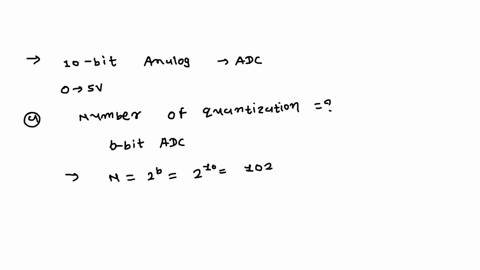 → 10-bit Analog → ADC
0→5V
(a) Number of quantization =?
b-bit ADC
→ N = 2^b = 2^10 = 102